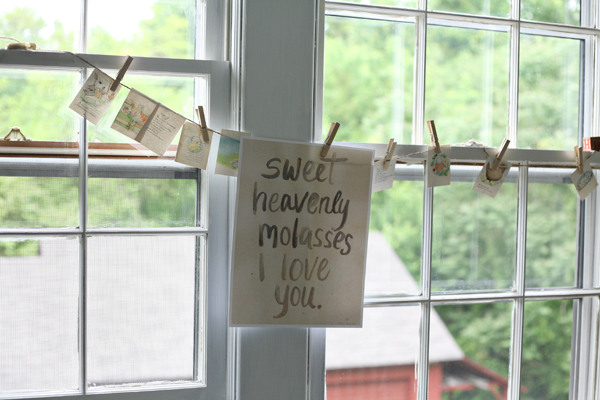 sweet
heavenly
molasses
I love
you.